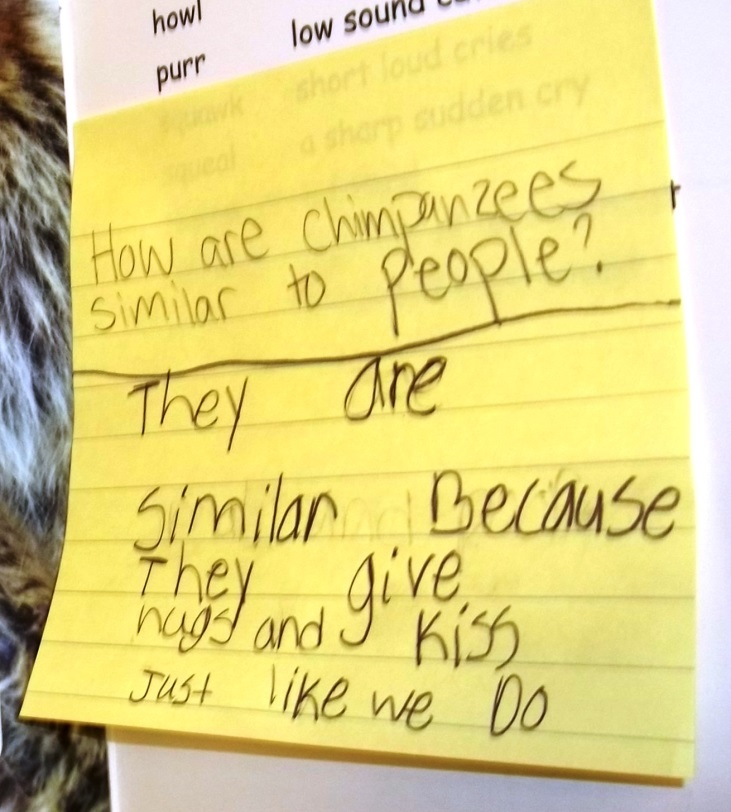 howl
low sound
purr
squawk short loud cries
squeal a sharp sudden cry
How are Chimpanzees
similar to people?
They are
Similar Because
They give
hugs and Kiss
Just like we Do